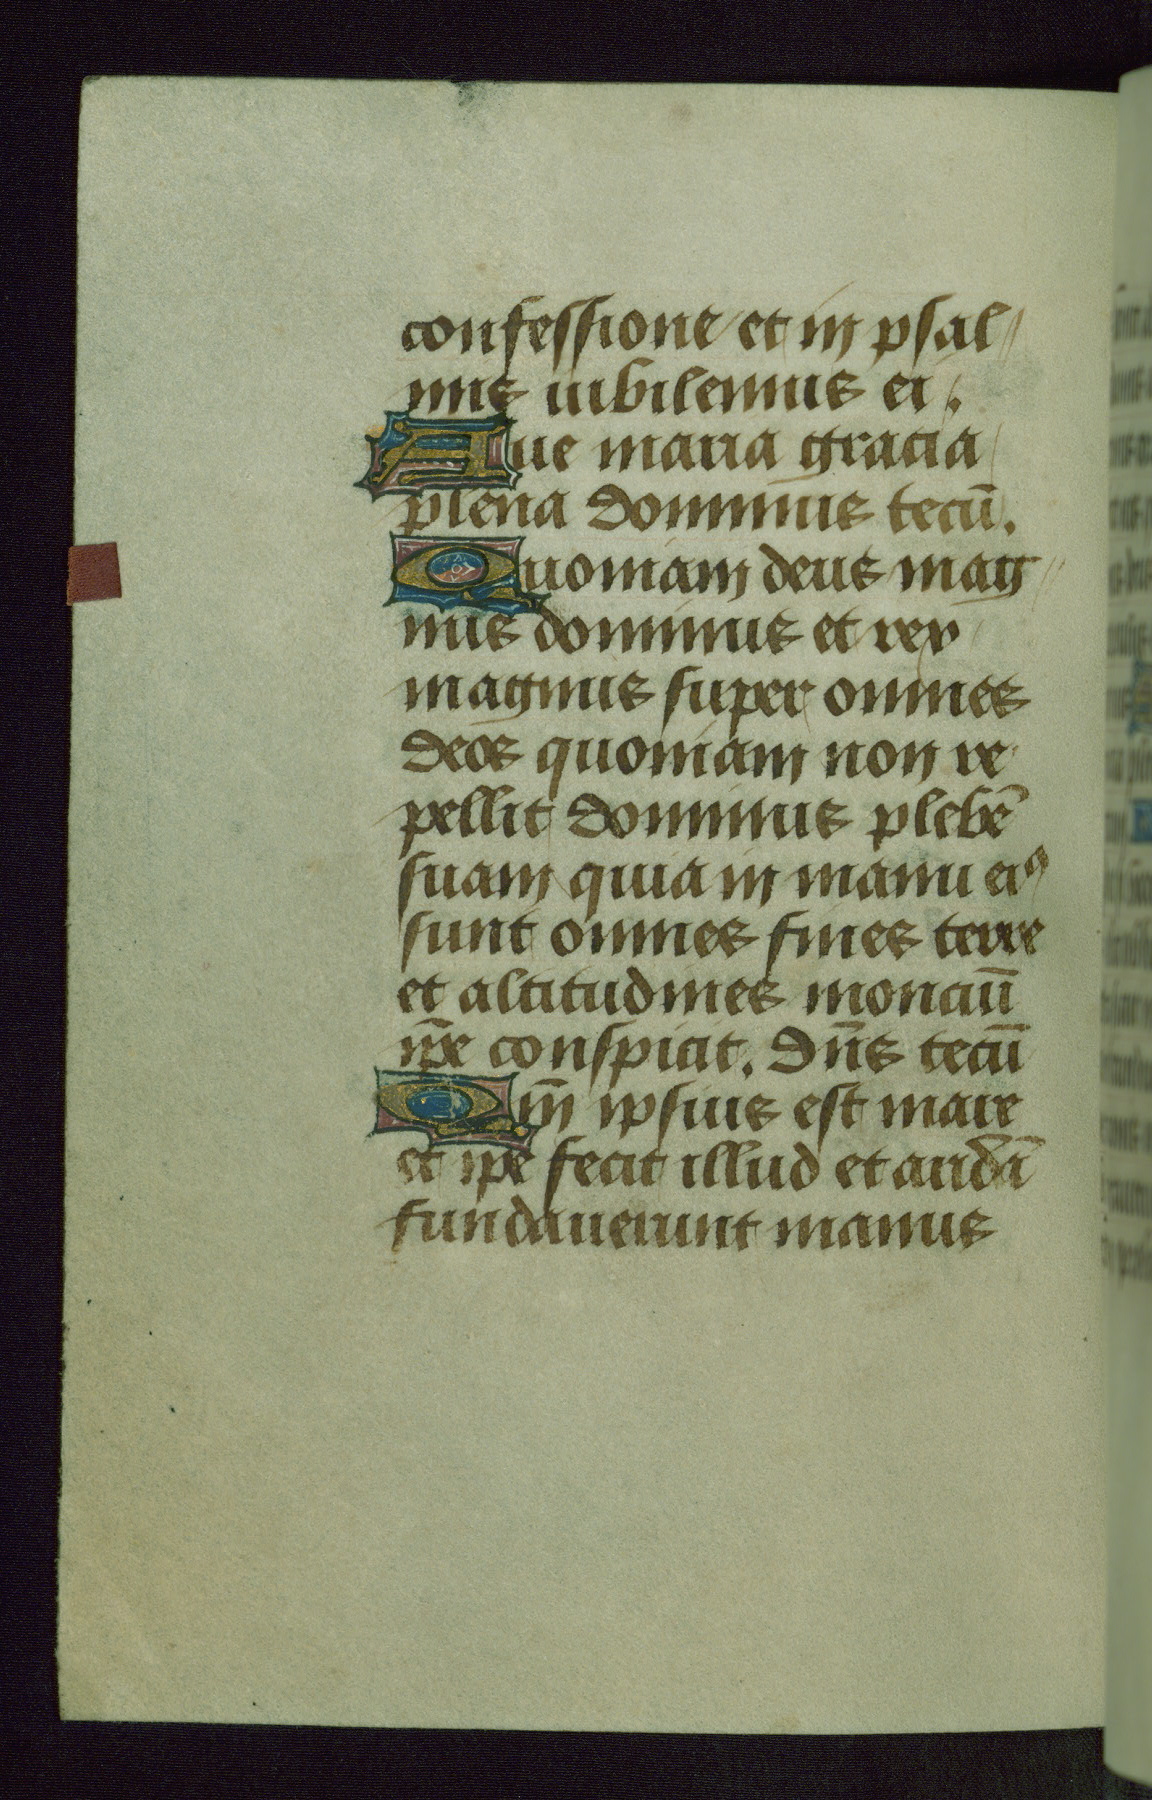 confessione et in psal
mis iubilemus ei.
Aue maria gracia
plena dominus tecū.
Quoniam deus mag
nus dominus et rex
magnus super omnes
deos quoniam non re
pellit dominus plebē
suam quia in manu eiꝰ
sunt omnes fines terre
et altitudines monciū
ip̄e conspicit. Dn̄s tecū
Qm̄ ipsius est mare
et ip̄e fecit illud et aridā
fundauerunt manus